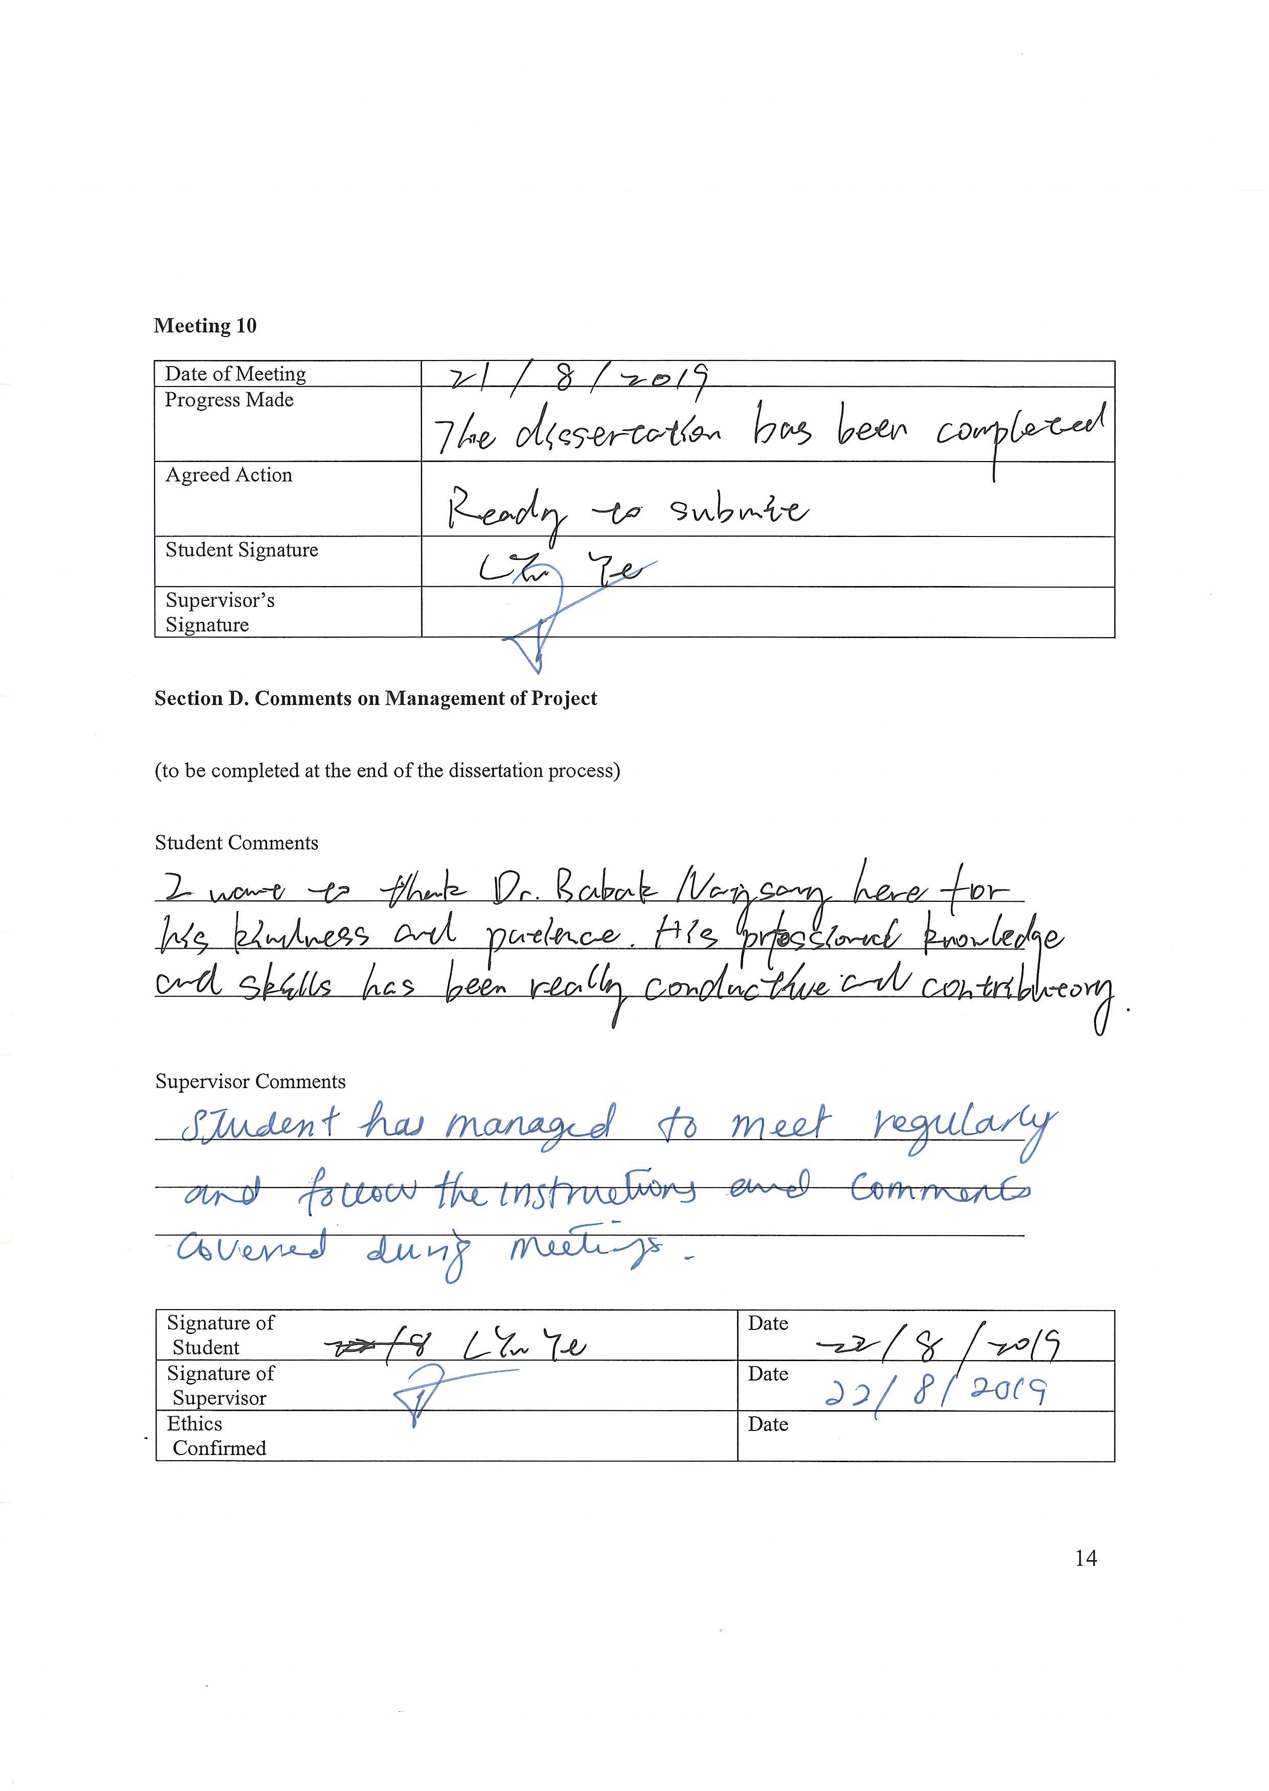 Meeting 10
Date of Meeting 21/8/2019
Progress Made
The dissertation has been completed
Agreed Action
Ready to submit
Student Signature Lin Ye
Supervisor's
Signature
Section D. Comments on Management of Project
(to be completed at the end of the dissertation process)
Student Comments
I want to thank Dr. Babak here for
his kindness and patience. His professional knowledge
and skills has been really conductive and
Supervisor Comments
Student has managed to meet regularly
and follow the instructions and comments
covered during meetings.
Signature of Date
Student Lin Ye 22/8/2019
Signature of Date
Supervisor 22/8/2019
Ethics Date
Confirmed
14